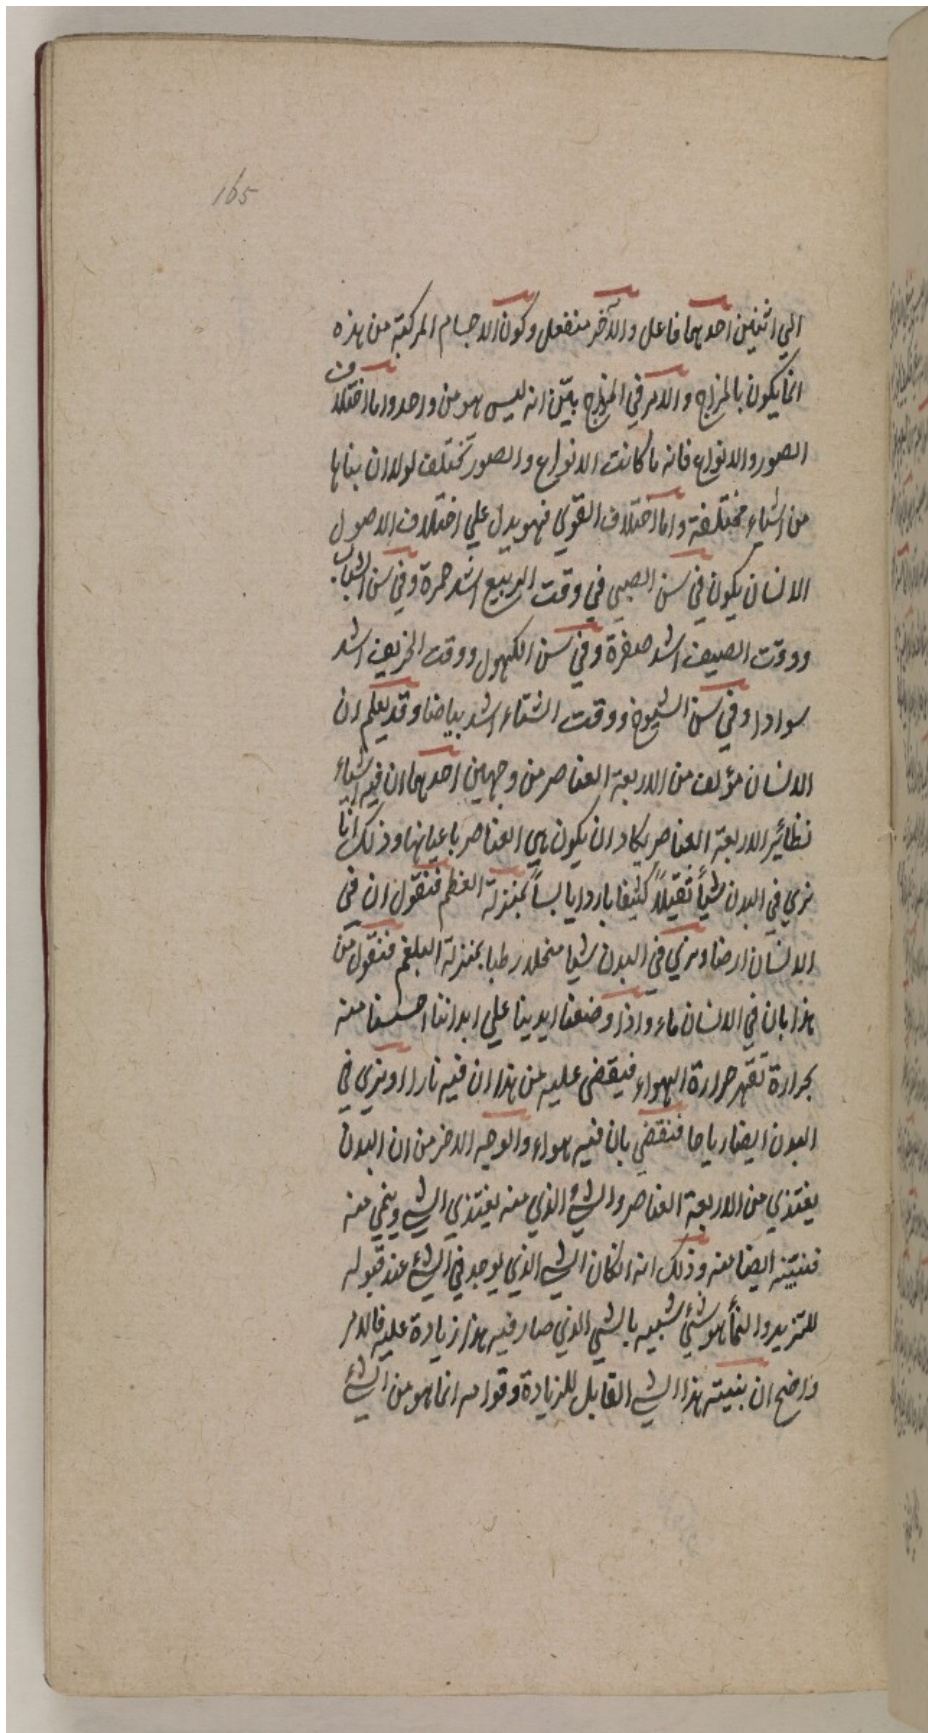 165
الي اثنين احدهما فاعل والآخر منفعل وكون الاجسام المركبة من هذه
انما يكون بالمزاج والامر في المزاج بيّن انه ليس هو من واحد واما اختلاف
الصور والانواع فانه ما كانت الانواع والصور تختلف لولا ان بناها
من اشياء مختلفة واما اختلاف القوي فهو يدل علي اختلاف الاصول
الانسان يكون في سن الصبي في وقت الربيع اشد حمرة وفي سن الشباب
ووقت الصيف اشد صفرة وفي سن الكهول ووقت الخريف اشد
سوادا وفي سن الشيوخ ووقت الشتاء اشد بياضا وقد يعلم ان
الانسان مؤلف من الاربعة العناصر من وجهين احدهما ان فيه اشياء
نظائير الاربعة العناصر يكاد ان يكون هي العناصر باعيانها وذلك انا
نري في البدن شيأ ثقيلاً كثيفا باردا يابساً بمنزلة العظم فنقول ان في
الانسان ارضا ونري في البدن شيا منحلا رطبا بمنزلة البلغم فنقول من
هذا بان في الانسان ماء واذا وضعنا ايدينا علي ابداننا احسسنا منه
بحرارة تقهر حرارة الهواء فيقضي عليه من هذا ان فيه نارا ونري في
البدن ايضا رياحا فنقضي بان فيه هواء والوجه الاخر من ان البدن
يغتذي من الاربعة العناصر والشئ الذي منه يغتذي الشي وينمي منه
فنبيته ايضا منه وذلك انه انكان الشي الذي يوجد في الشئ عند قبوله
للتزيد والنمأ هو شئ شبيه بالشي الذي صار فيه هذا زيادة عليه فالامر
واضح ان بنيته هذا الشي القابل للزيادة وقوامه انما هو من الشئ